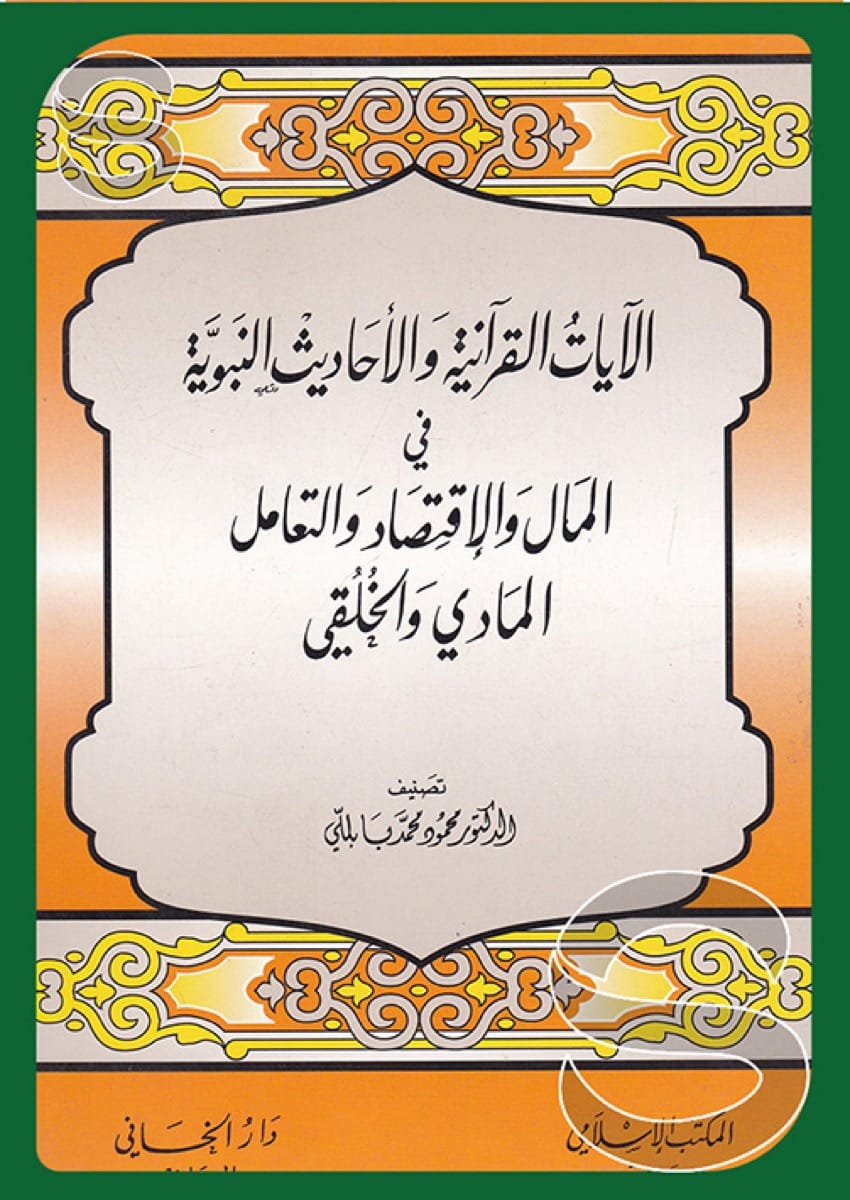 الآيَاتُ القرآنية وَالأحَاديْث النبَويَّة
في
المَال وَالإقتِصَاد وَالتعامل
المَادي وَالخُلُقي
تصَنيف
الدكتور محمُود محمَّد بَابللّي
المكتب الإسْلَامي
دَارُ الخَاني